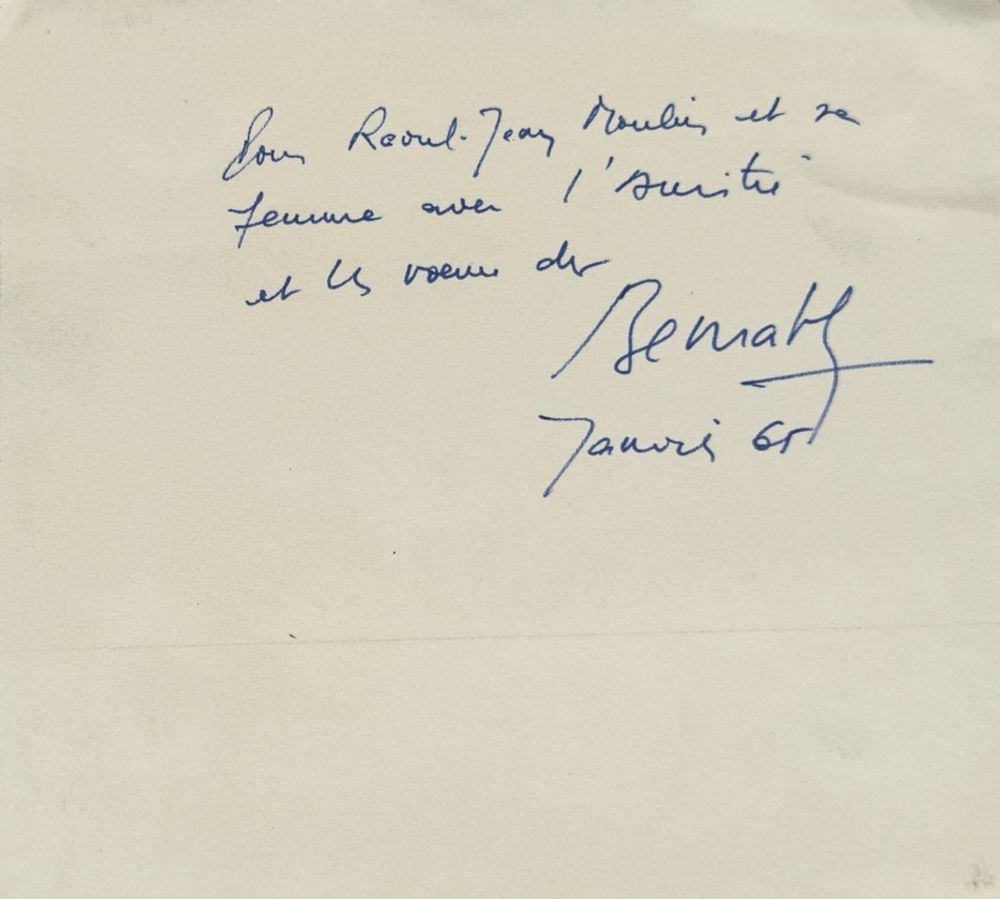 Pour Raoul-Jean Moulin et sa
femme avec l'amitié
et les voeux de
Janvier 65